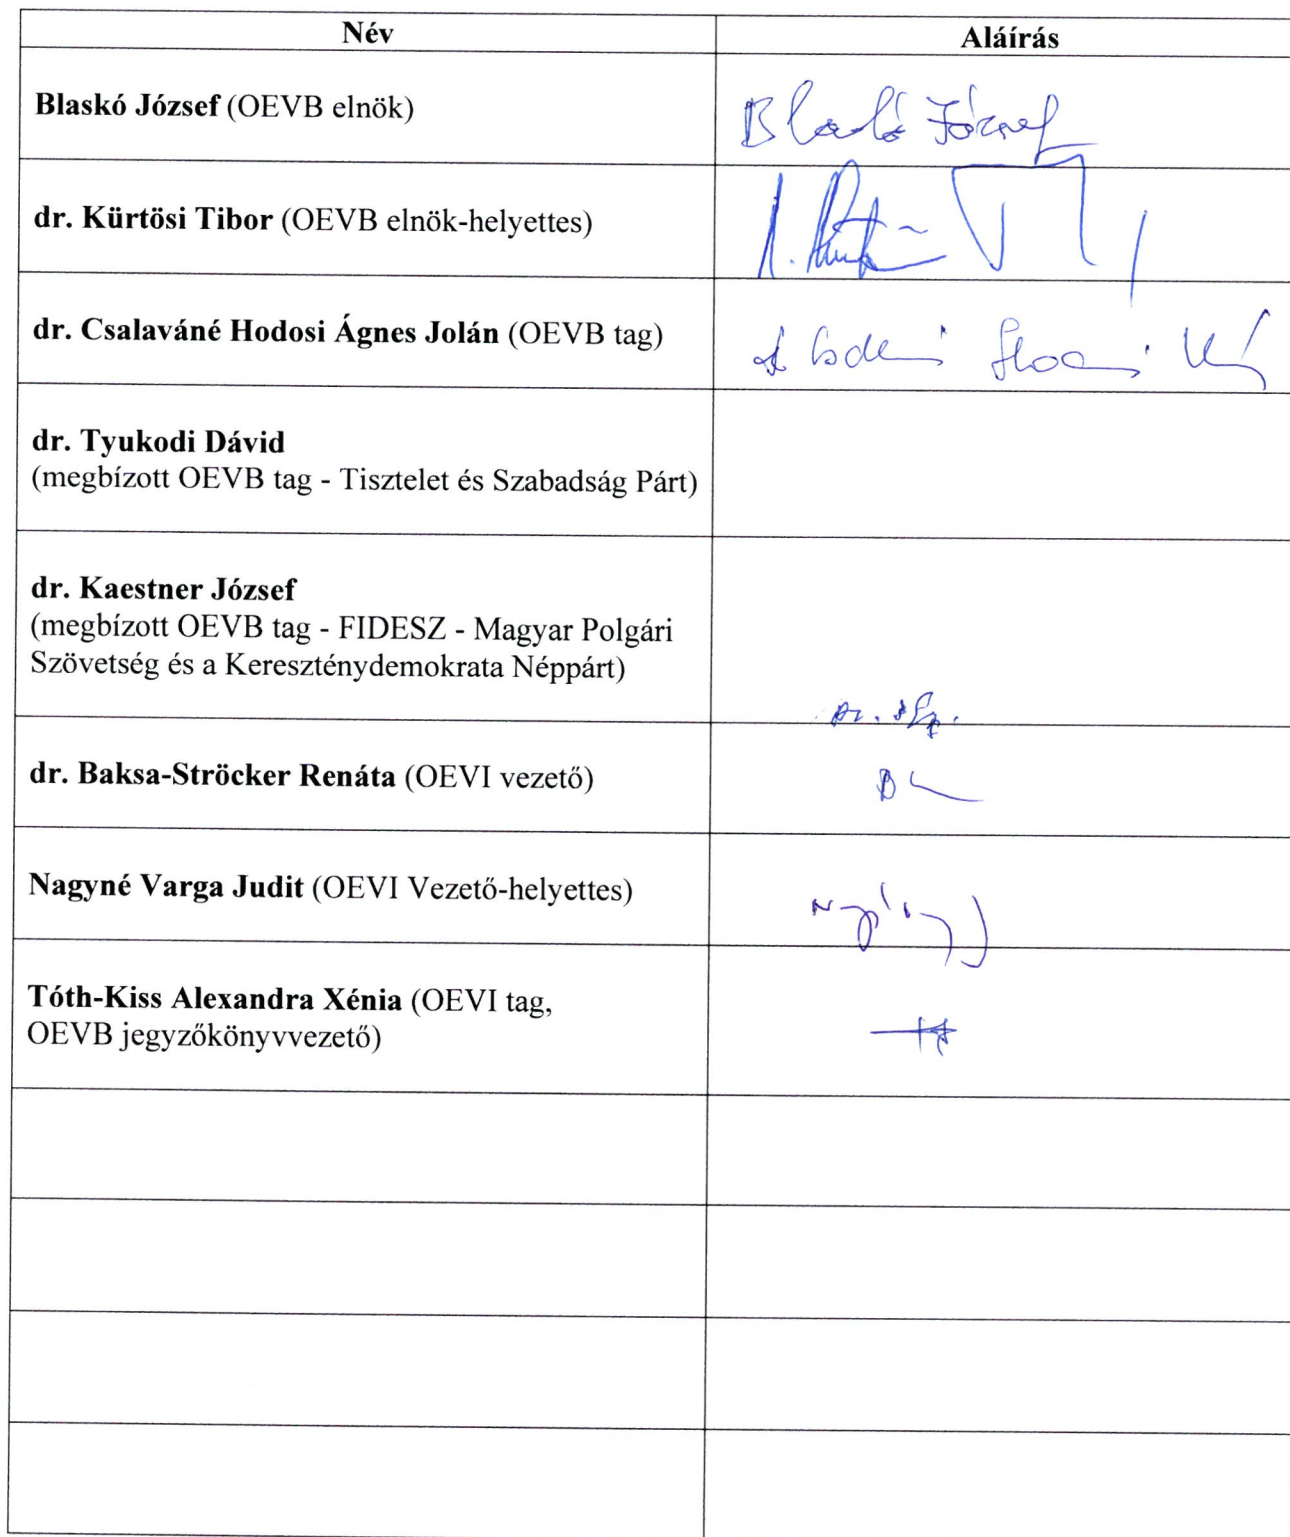 Név
Aláírás
Blaskó József (OEVB elnök)
Blaskó József
dr. Kürtösi Tibor (OEVB elnök-helyettes)
dr. Csalaváné Hodosi Ágnes Jolán (OEVB tag)
dr. Tyukodi Dávid
(megbízott OEVB tag - Tisztelet és Szabadság Párt)
dr. Kaestner József
(megbízott OEVB tag - FIDESZ - Magyar Polgári
Szövetség és a Kereszténydemokrata Néppárt)
dr. Baksa-Ströcker Renáta (OEVI vezető)
Nagyné Varga Judit (OEVI Vezető-helyettes)
Tóth-Kiss Alexandra Xénia (OEVI tag,
OEVB jegyzőkönyvvezető)